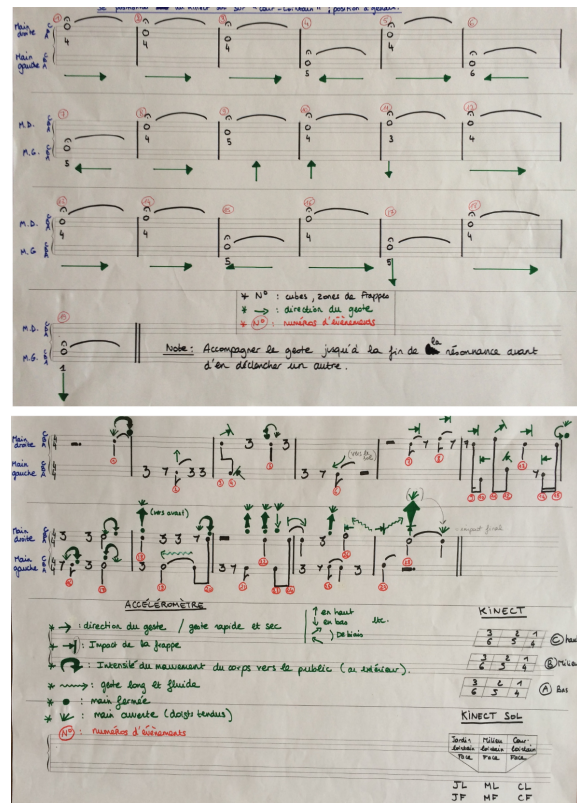 Se positionner au Kinect sol sur "Cour-Lointain" ; position à genoux.
① ② ③ ④ ⑤ ⑥
Main droite C B A
4 4 4 4
Main gauche C B A
5 6
⑦ ⑧ ⑨ ⑩ ⑪ ⑫
M.D. C B A
4 5 4 3 4
M.G. C B A
5
M.D. C B A
4 4 4 4
M.G C B A
5 5
* N° : cubes, zones de frappes
* → : direction du geste
* N° : numéros d'évènements
M.D. C B A
M.G. C B A
1
Note : Accompagner le geste jusqu'à la fin de la résonnance avant
d'en déclencher un autre.
Main droite C B A
Main gauche C B A
(vers le sol)
Main droite C B A
(vers avant)
impact final
Main gauche C B A
ACCÉLÉROMÈTRE
* → : direction du geste / geste rapide et sec
↑ en haut
↓ en bas etc.
De biais
* →| : Impact de la frappe
* : Intensité du mouvement du corps vers le public (ou extérieur).
* : geste long et fluide
* ● : main fermée
* : main ouverte (doigts tendus)
N° : numéros d'évènements
KINECT
3 2 1
6 5 4
Ⓒ haut
3 2 1
6 5 4
Ⓑ Milieu
3 2 1
6 5 4
Ⓐ Bas
KINECT SOL
Jardin lointain Milieu lointain Cour-lointain
Face Face Face
JL ML CL
JF MF CF